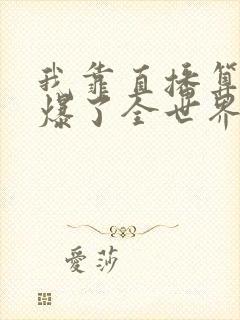 我靠直播算
爆了全世界
愛莎